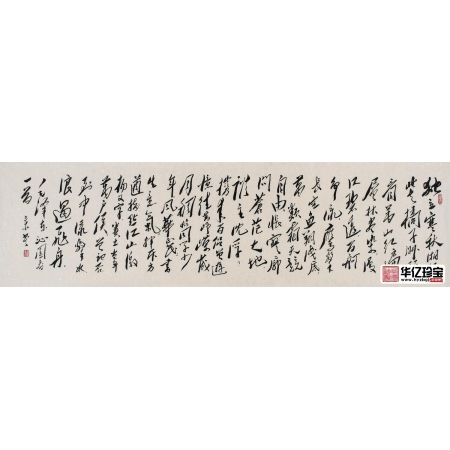 独立寒秋湘
北去橘子洲
看萬山红遍
层林尽染漫
江碧透百舸
争流鹰击
長空鱼翔浅底
萬類霜天競
自由怅寥廓
問苍茫大地
谁主沉浮
携来百侣曾遊
忆往昔峥嵘歲
月稠恰同学少
年風華正茂書
生意氣挥斥方
遒指點江山激
扬文字粪土当年
萬户侯曾记否
到中流击水
浪遏飞舟
毛泽东沁园春
一首
华亿珍宝